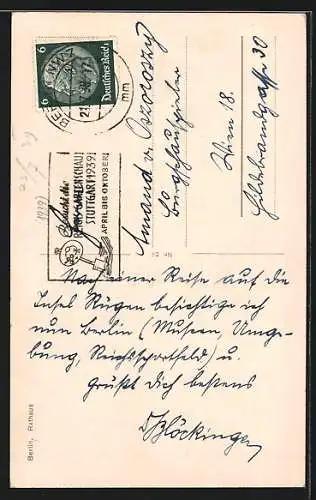 6 Deutsches Reich 6
BERLIN
21
mm
Besucht die
REICHSGARTENSCHAU
STUTTGART 1939
APRIL BIS OKTOBER
(1939)
Amand v. Ozoroczy
Burgschauspieler
Wien 18.
Hildebrandgasse 30
Nach einer Reise auf die
Insel Rügen besichtige ich
nun Berlin (Museen, Umge-
bung, Reichssportfeld) u.
grüßt Dich bestens
Blöckinger
Berlin, Rathaus